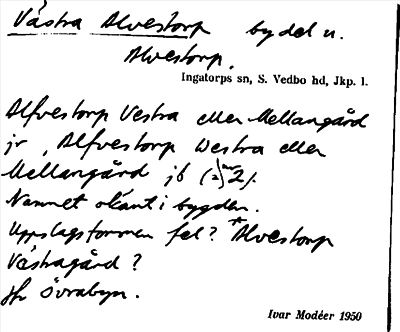 Västra Alvestorp bydel u.
Alvestorp.
Ingatorps sn, S. Vedbo hd, Jkp. l.
Alfvestorp Vestra eller Mellangård
jr, Alfvestorp Westra eller
Mellangård jb
Namnet okänt i bygden.
Uppslagsformen fel? *Alvestorp
Västragård?
Jfr Övrabyn.
Ivar Modéer 1950